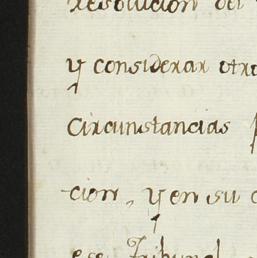 resolucion del
y considerar otra
Circunstancias
cion, y en su
ese Tribunal